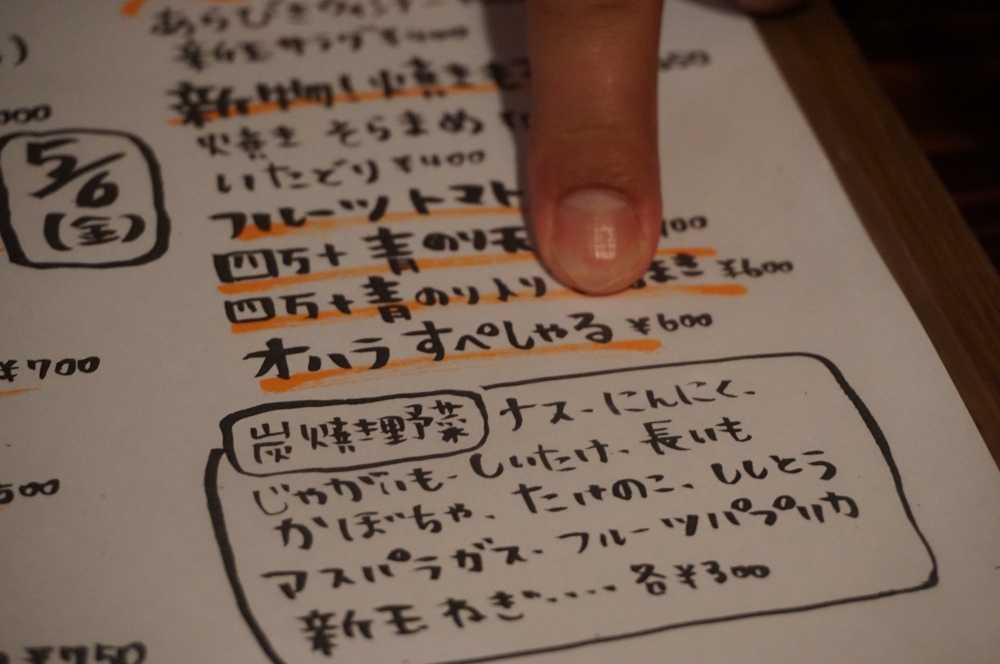 あらびきウィンナー
新玉サラダ ¥400
新物！焼き
焼き そらまめ
いたどり ¥400
フルーツトマト
四万十 青のり天 00
四万十青のり入り まき ¥600
オハラ すぺしゃる ¥600
5/6
(金)
000
¥700
500
¥750
炭焼き野菜 ナス、にんにく、
じゃがいも、しいたけ、長いも
かぼちゃ、たけのこ、ししとう
アスパラガス、フルーツパプリカ
新玉ねぎ‥‥ 各¥300